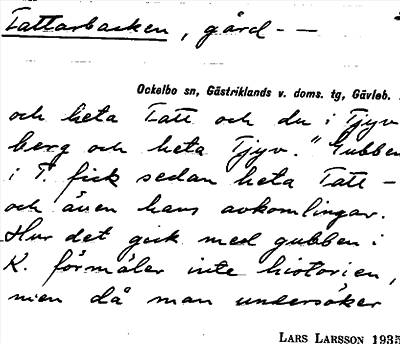 Tattarbacken, gård - -
Ockelbo sn, Gästriklands v. doms. tg, Gävleb.
och heta Tatt och du i Tjyv
berg och heta Tjyv." Gubben
i T. fick sedan heta Tatt -
och även hans avkomlingar.
Hur det gick med gubben i
K. förmäler inte historien,
men då man undersöker
LARS LARSSON 1935